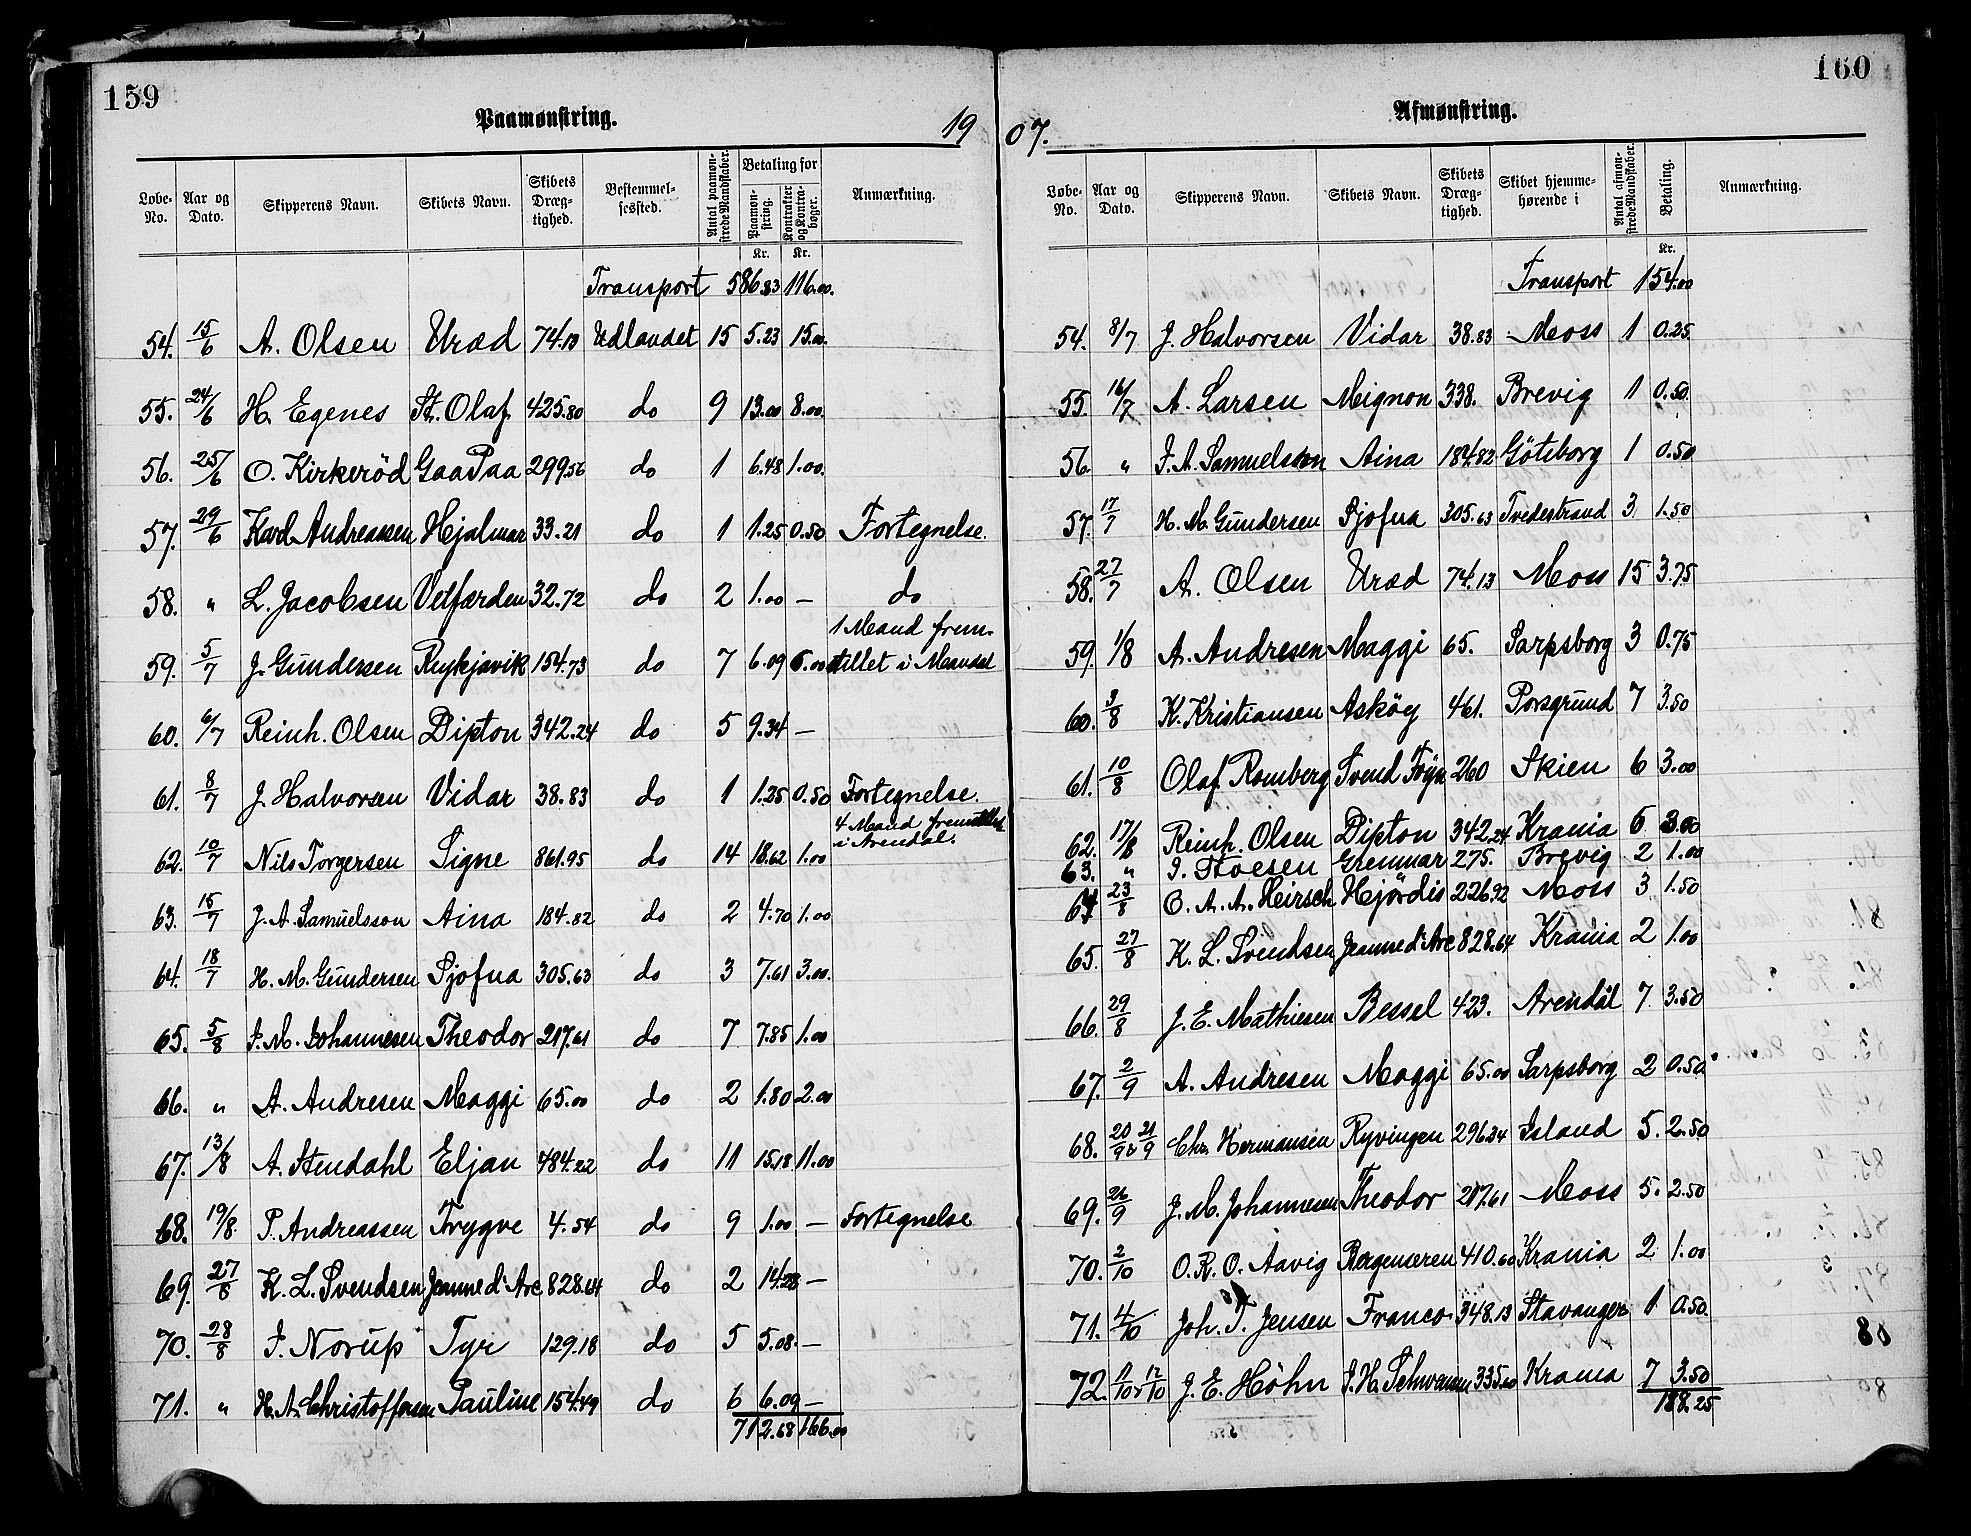 159
Paamønstring.
19
Løbe-No. Aar og Dato. Skipperens Navn. Skibets Navn. Skibets Dræg-tighed. Bestemmel-sessted. Antal paamøn-strede Mandskaber. Betaling for Paamøn-string. Kontrakter og Kontra-bøger. Anmærkning.
Kr. Kr.
Transport 586.83 116.00.
54. 15/6 A. Olsen Uræd 74.13 Udlandet 15 5.23 15.00.
55. 24/6 H. Egenes St. Olaf 425.80 do 9 13.00 8.00.
56. 25/6 O. Kirkeröd GaaPaa 299.56 do 1 6.48 1.00.
57. 29/6 Karl Andreassen Hjalmar 33.21 do 1 1.25 0.50 Fortegnelse.
58. " L. Jacobsen Velfærden 32.72 do 2 1.00 — do
59. 5/7 J. Gundersen Reykjavik 154.73 do 7 6.09 6.00 1 Mand frem-
stillet i Mandal
60. 6/7 Reinh. Olsen Dipton 342.24 do 5 9.34 —
61. 8/7 J. Halvorsen Vidar 38.83 do 1 1.25 0.50 Fortegnelse.
62. 10/7 Nils Torgersen Signe 861.95 do 14 18.62 1.00 4 Mand fremstillet
i Arendal.
63. 15/7 J. A. Samuelsson Aina 184.82 do 2 4.70 1.00
64. 18/7 H. M. Gundersen Sjofna 305.63 do 3 7.61 3.00.
65. 5/8 J. M. Johannesen Theodor 217.61 do 7 7.85 1.00
66. " A. Andresen Maggi 65.00 do 2 1.80 2.00
67. 13/8 A. Stendahl Eljan 484.22 do 11 15.18 11.00
68. 19/8. P. Andreassen Trygve 4.54 do 9 1.00 — Fortegnelse
69. 27/8 K. L. Svendsen Jeanne d'Arc 828.64 do 2 14.28 —
70. 28/8 J. Norup Tyr 129.18 do 5 5.08. —
71. " H. A. Christoffersen Pauline 154.49 do 6 6.09 —
712.68 166.00
160
Afmønstring.
07.
Løbe-No. Aar og Dato. Skipperens Navn. Skibets Navn. Skibets Dræg-tighed. Skibet hjemme-hørende i Antal afmøn-strede Mandskaber. Betaling. Anmærkning.
Kr.
Transport 154.00
54. 8/7 J. Halvorsen Vidar 38.83 Moss 1 0.25
55. 16/7 A. Larsen Mignon 338. Brevig 1 0.50
56. " J. A. Samuelsson Aina 184.82 Göteborg 1 0.50
57. 17/7 H. M. Gundersen Sjofna 305.63 Tvedestrand 3 1.50
58. 27/7 A. Olsen Uræd 74.13 Moss 15 3.75
59. 1/8 A. Andresen Maggi 65. Sarpsborg 3 0.75
60. 3/8 K. Kristiansen Asköy 461. Porsgrund 7 3.50
61. 10/8 Olaf Romberg Svend Föyn 260 Skien 6 3.00
62. 17/8 Reinh. Olsen Dipton 342.24 Krania 6 3.00
63. " J. Stoesen Grenmar 275. Brevig 2 1.00
64 23/8 O. A. A. Heirsch Hjördis 226.92 Moss 3 1.50
65. 27/8 K. L. Svendsen Jeanne d'Arc 828.64 Krania 2 1.00
66. 29/8 J. E. Mathiesen Bessel 423. Arendal 7 3.50
67. 2/9 A. Andresen Maggi 65.00 Sarpsborg 2 0.50
68. 20/9 & 21/9 Chr. Hermansen Ryvingen 296.34 Island 5. 2.50
69. 26/9 J. M. Johannesen Theodor 217.61 Moss 5. 2.50
70. 2/10 O. R. O. Aavig Bergenseren 410.60 Krania 2 1.00
71. 4/10 Joh. T. Jensen Franco 348.13 Stavanger 1 0.50
72. 11/10 & 12/10 J. E. Höhn 335.00 Krania 7 3.50
188.25